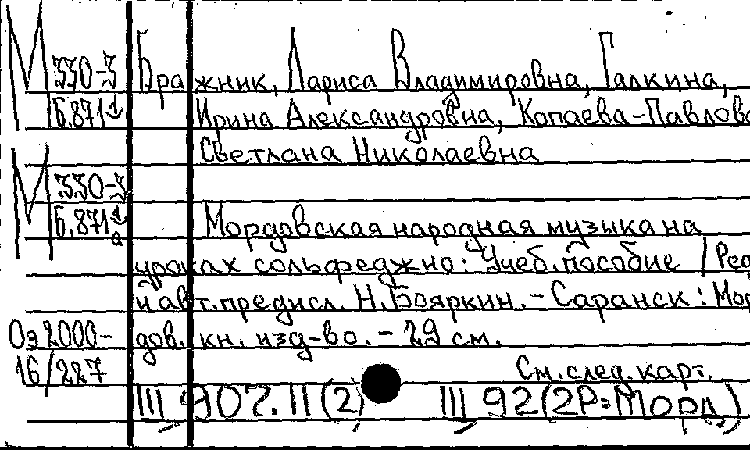 М 330-3 Бражник, Лариса Владимировна, Галкина,
Б.871 Ирина Александровна, Копаева-Павлова
Светлана Николаевна
М 330-3
Б.871 Мордовская народная музыка на
уроках сольфеджио: Учеб. пособие / Ред
и авт. предисл. Н. Бояркин. - Саранск: Мор
Оэ 2000- дов. кн. изд-во. - 29 см.
16/227 См. след. карт.
Ш 907.11(2) Ш 92(2Р=Морд)